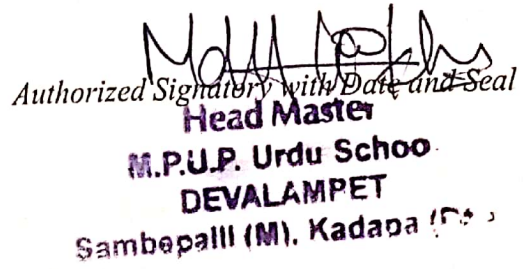 Authorized Signatory with Date and Seal
Head Master
M.P.U.P. Urdu Schoo
DEVALAMPET
Sambepalli (M). Kadapa